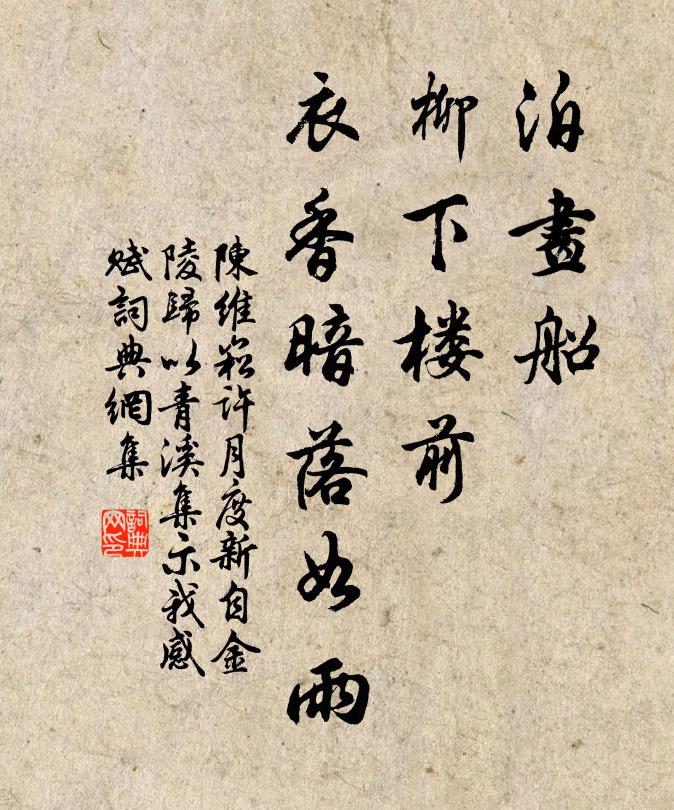 泊畫船
柳下楼前
衣香暗落如雨
陳維崧許月度新自金
陵歸以青溪集示我感
赋詞典網集
詞典
网印